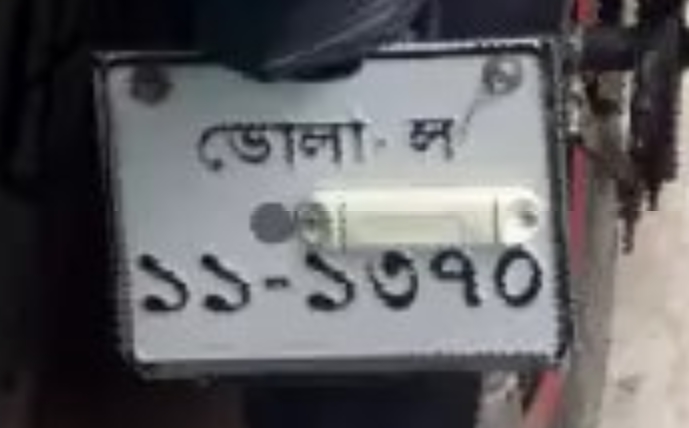 ভোলা-ল
১১-১৩৭০